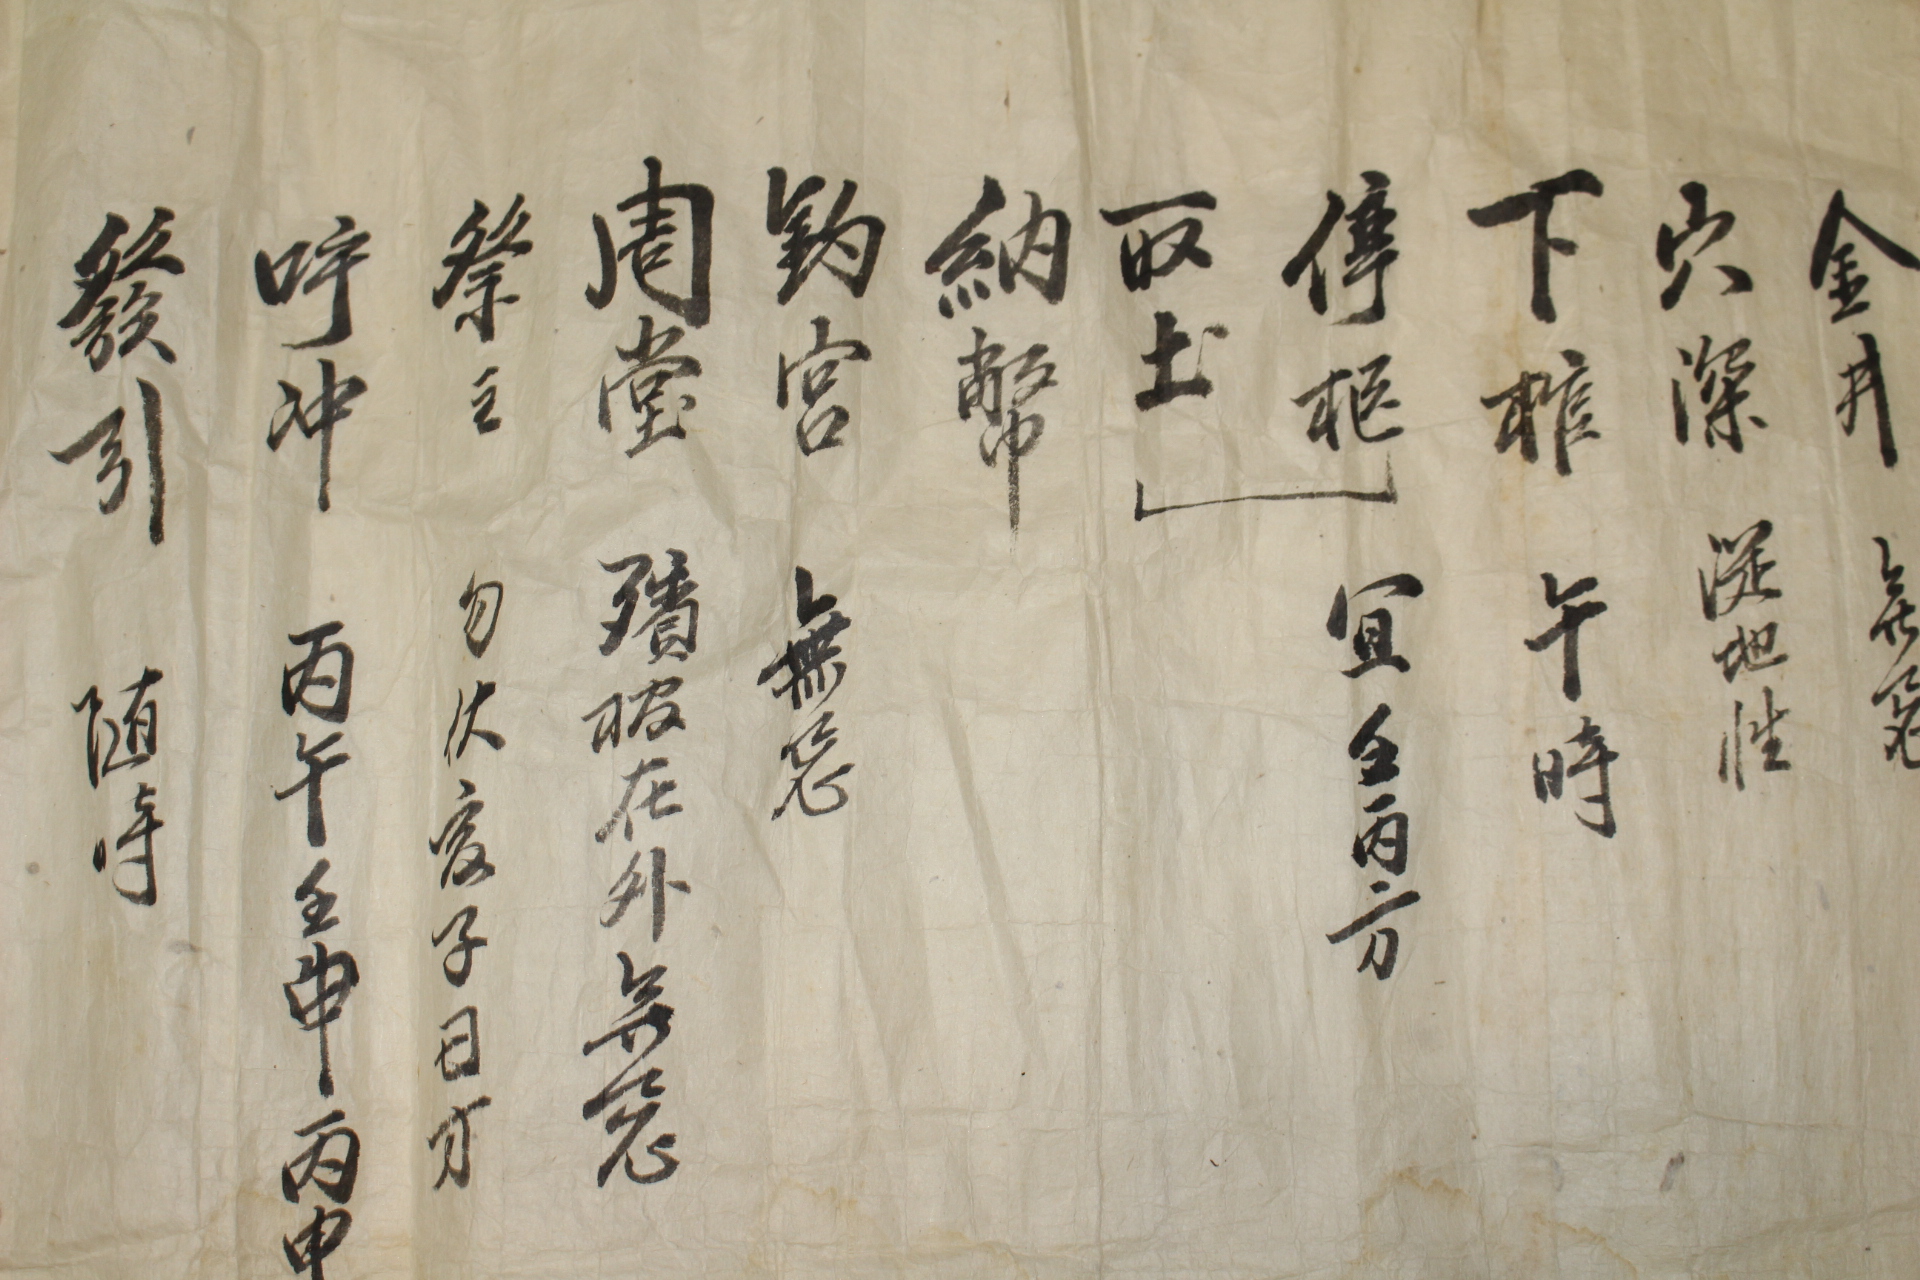 金井 無忌
穴深 從地性
下椎 午時
停柩
取土 宜壬丙方
納幣
釣宮 無忌
周堂 殯服在外無忌
祭主 勿伏亥子日方
呼冲 丙午壬申丙申
發引 随時